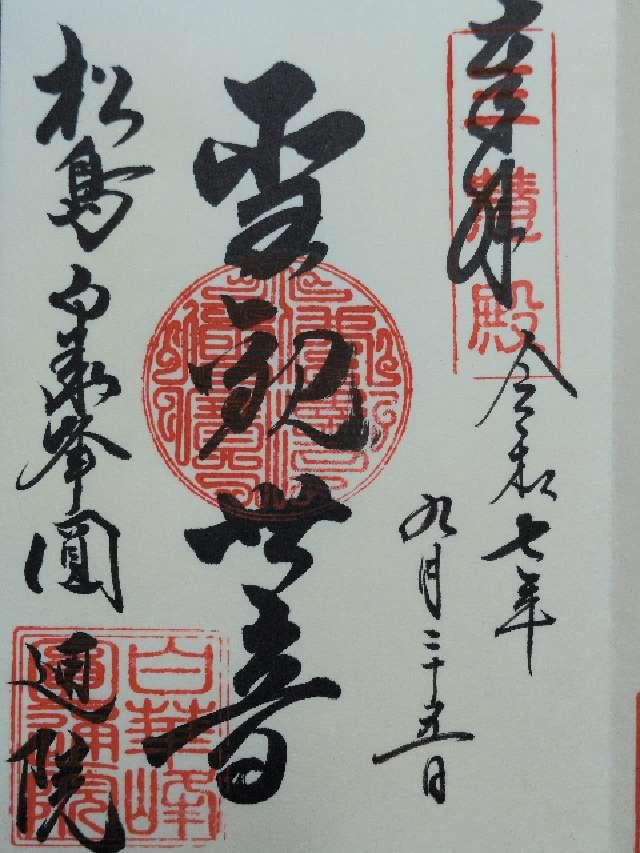 奉拝
三慧殿
令和七年
九月二十五日
聖観世音
松島 白華峰 圓通院
白華峰
圓通院